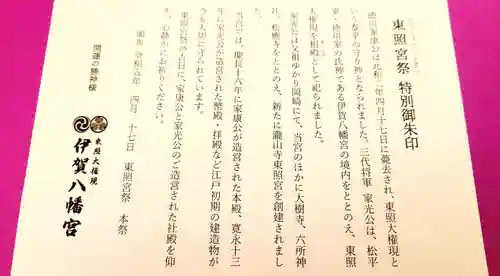 東照宮祭 特別御朱印
徳川家康公は元和二年四月十七日に薨去され、東照大権現と
いう泰平の守り神となられました。三代将軍 家光公は、松平
家・徳川家の氏神である伊賀八幡宮の境内をととのえ、東照
大権現を相殿として祀られました。
家光公は父祖ゆかり岡崎にて、当宮のほかに大樹寺、六所神
社、松應寺をととのえ、新たに瀧山寺東照宮を創建されまし
た。
当宮では、慶長十六年に家康公が造営された本殿、寛永十三
年に家光公が造営された幣殿・拝殿など江戸初期の建造物が
今も大切に守られています。
東照宮祭の当日に、家康公と家光公のご造営された社殿を仰
ぎ、心静かにお祈りください。
頒布 令和五年 四月 十七日 東照宮祭 本祭
開運の勝神様
東照大権現
伊賀八幡宮